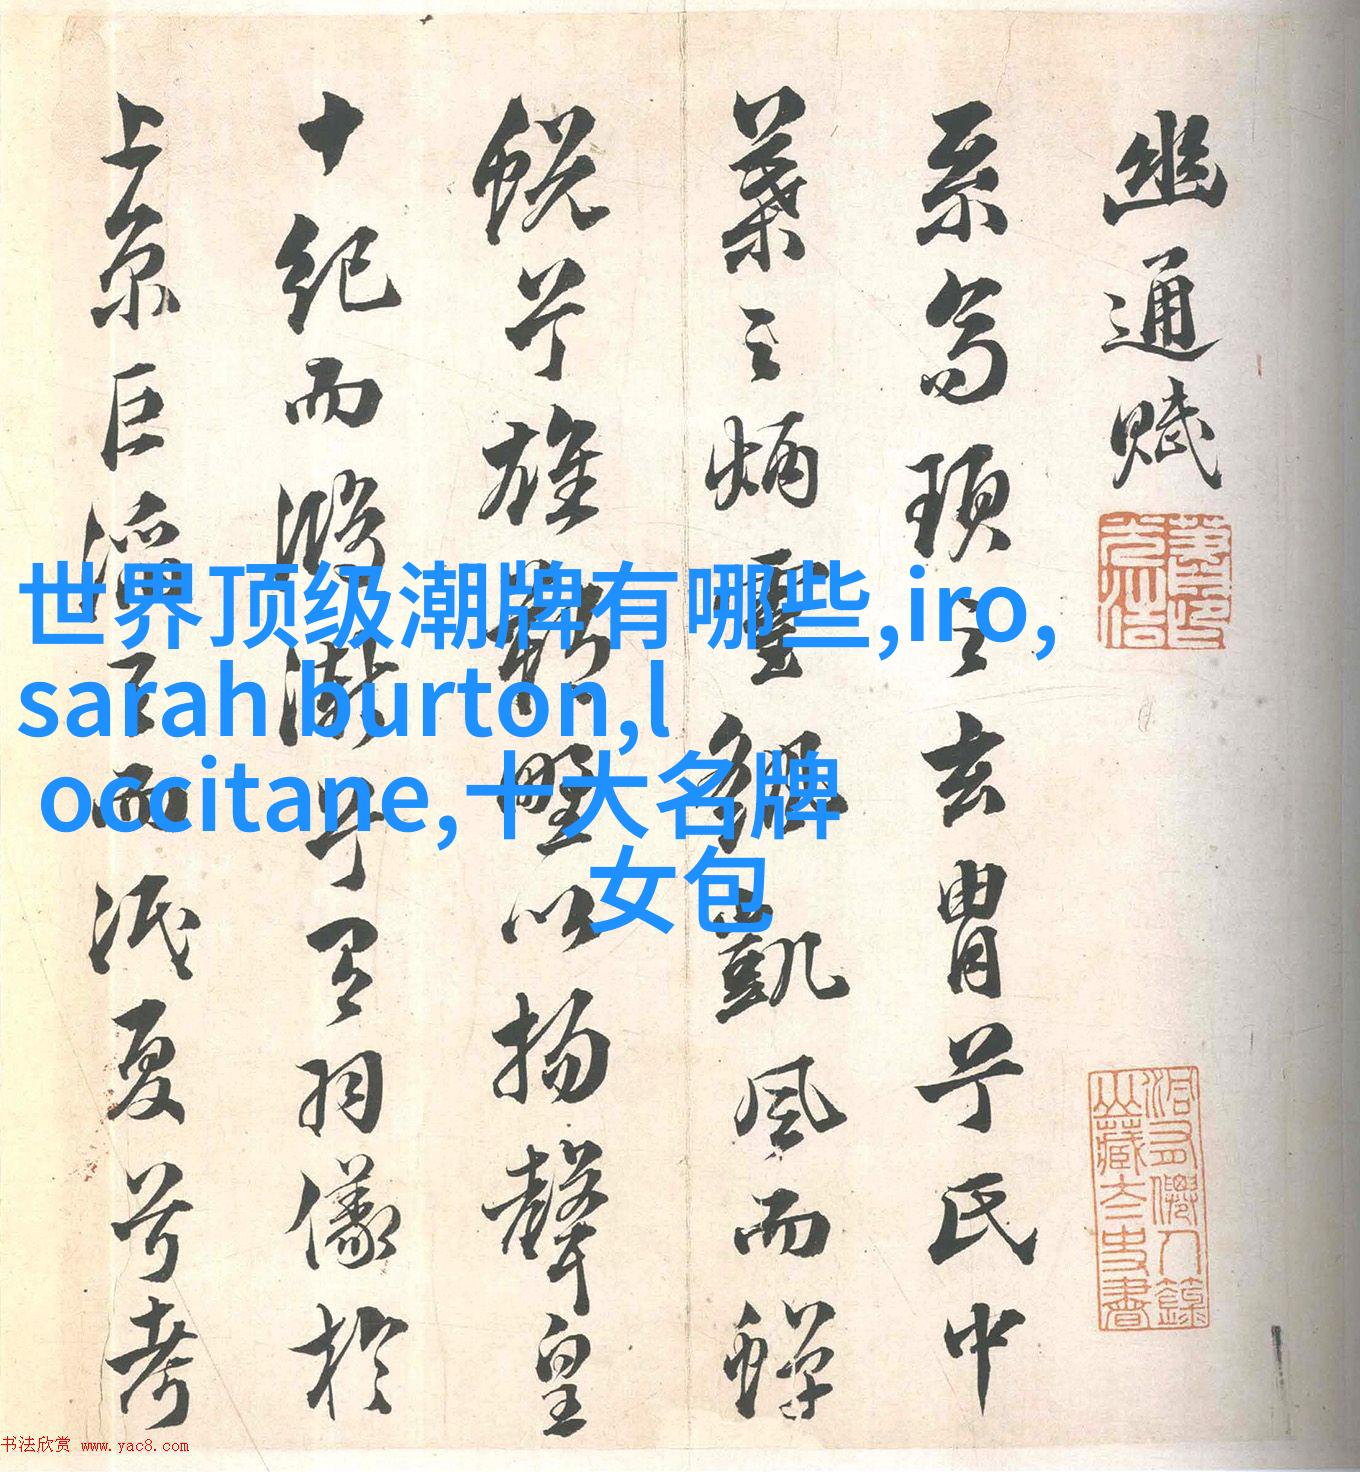 幽通賦
系高頊之玄冑兮氏中
葉之炳靈繇凱風而蟬
蛻兮雄朔野以揚聲皇
十紀而鴻漸兮有羽儀於
上京巨滔天而泯夏兮考
世界顶级潮牌有哪些,iro,
sarah burton,l
occitane,十大名牌
女包
书法欣赏 www.yac8.com